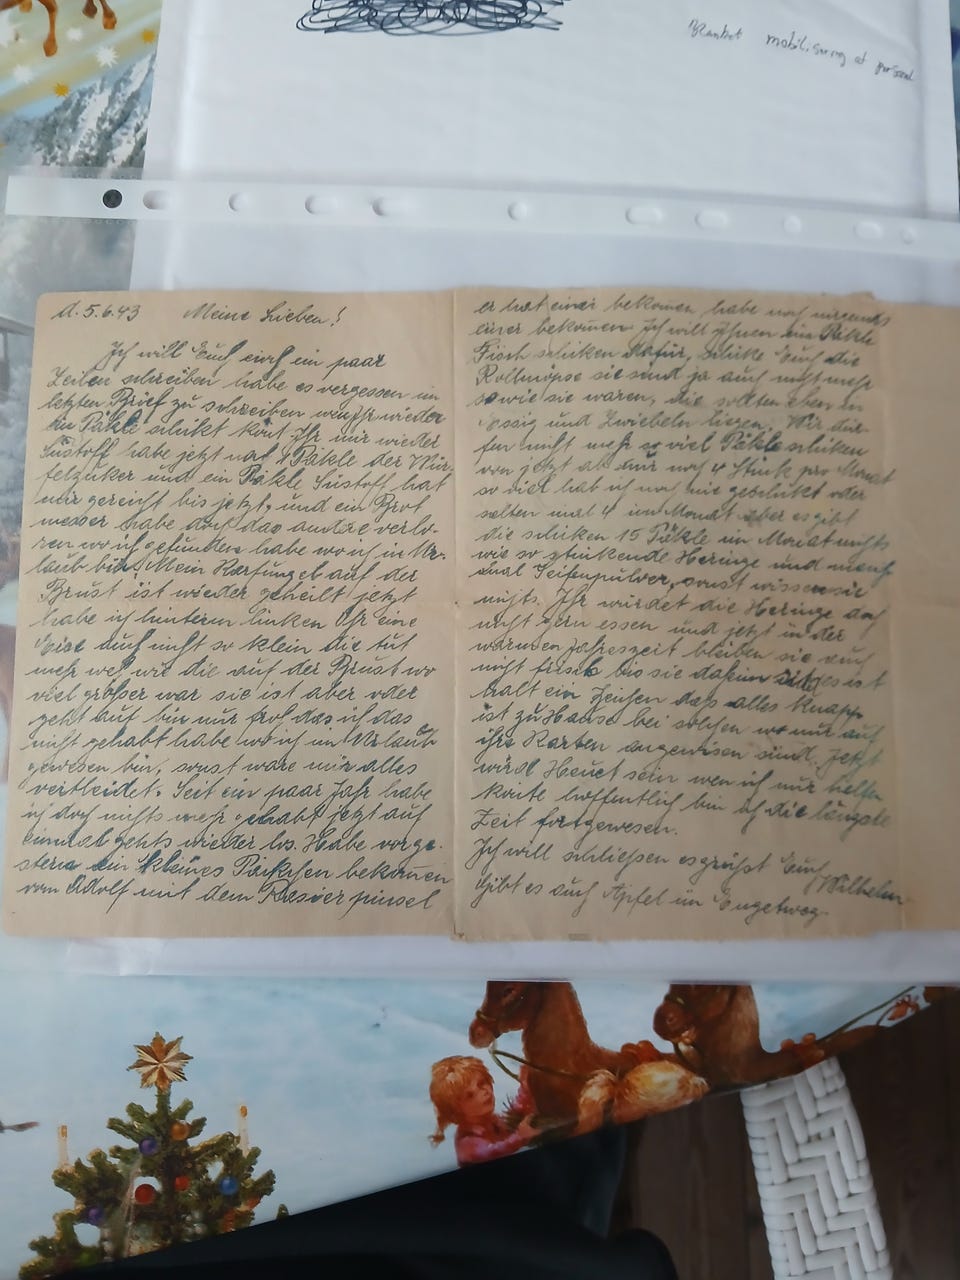 mobilisering af personel
d. 5.6.43 Meine Lieben!
Ich will Euch noch ein paar
Zeilen schreiben habe es vergessen im
letzten Brief zu schreiben wen Ihr wieder
ein Päkle schikt könt Ihr mir wieder
Süstoff habe jetzt noch 1 Päkle der Wür-
felzuker und ein Päkle Süstoff hat
mir gereicht bis jetzt, und ein Brot
messer habe doch das andre verlo-
ren wo ich gefunden habe wo ich in Ur-
laub bin. Mein Karfungel auf der
Brust ist wieder geheilt jetzt
habe ich hinterm linken Ohr eine
Eise auch nicht so klein die tut
mehr weh wie die auf der Brust wo
viel größer war sie ist aber oder
geht auf bin nur froh das ich das
nicht gehabt habe wo ich im Urlaub
gewesen bin, sonst wäre mir alles
vertleidet. Seit ein paar Jahr habe
ich doch nichts mehr gehabt jetzt auf
einmal gehts wieder los. Habe vorge-
stern ein kleines Päkchen bekomen
vom Adolf mit dem Rasier pinsel
er hat einer bekomen habe noch nirgends
einer bekomen Ich will Ihnen ein Päkle
Fisch schiken dafür, schike Euch die
Rollmöpse sie sind ja auch nicht mehr
so wie sie waren, die sollten eben in
Essig und Zwiebeln liegen. Wir dür-
fen nicht mehr so viel Päkle schiken
von jetzt ab nur noch 4 Stuck pro Monat
so viel hab ich noch nie geschikt oder
selten mal 4 im Monat aber es gibt
die schiken 15 Päkle im Monat nichts
wie so stinkende Heringe und manch-
mal Seifenpulver, sonst wissen sie
nichts. Ihr würdet die Heringe doch
nicht gern essen und jetzt in der
warmen Jahreszeit bleiben sie auch
nicht frisch bis sie daheim sind es ist
halt ein Zeichen dass alles knapp
ist zu Hause bei solchen wo nur auf
ihre Karten angewisen sind. Jetzt
wird Heuet sein wen ich nur helfen
könte hoffentlich bin ich die längste
Zeit fortgewesen.
Ich will schließen es grüßt Euch
Wilhelm
Gibt es auch Äpfel im Engetweg.